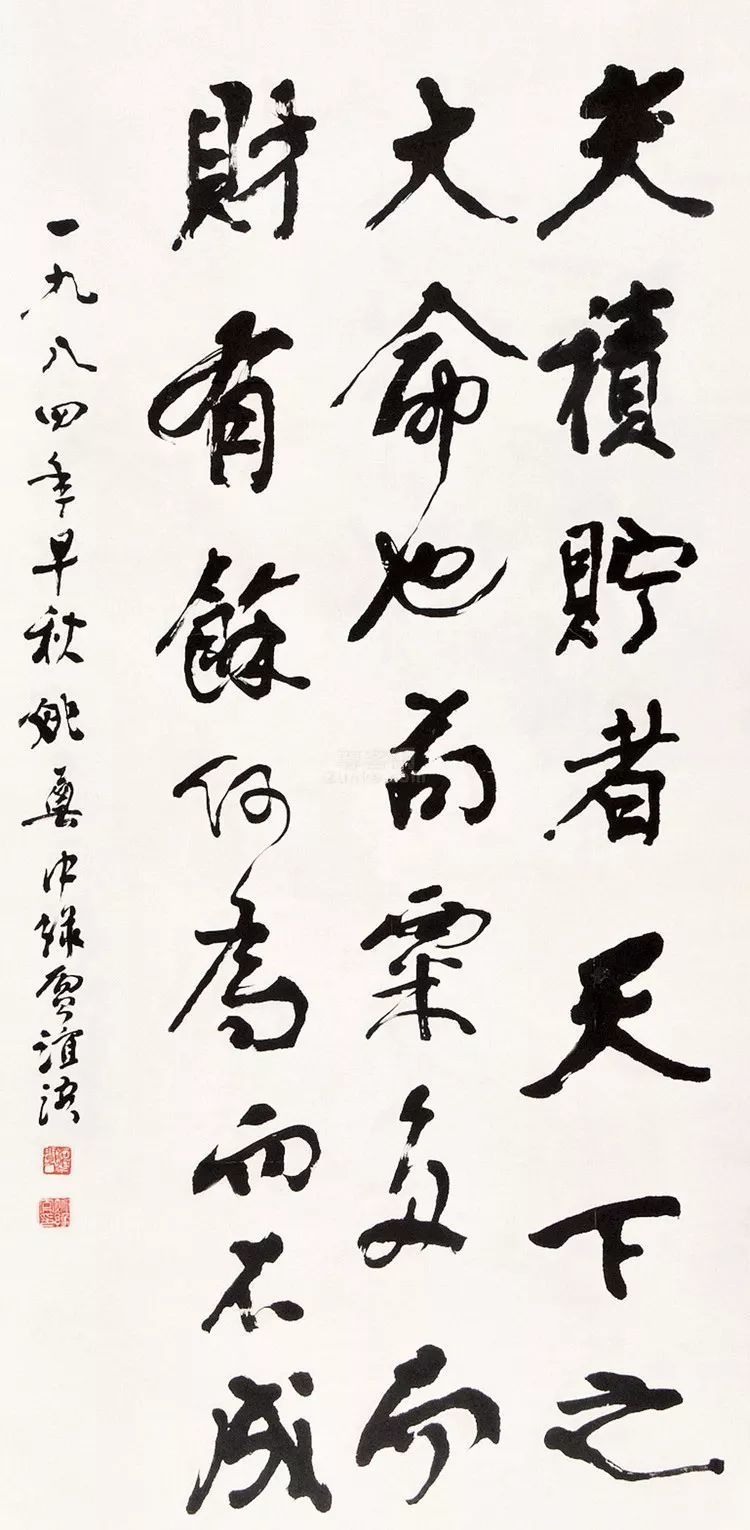 夫積貯者天下之
大命也苟粟多而
財有餘何為而不成
一九八四年早秋姚奠中録賈誼語